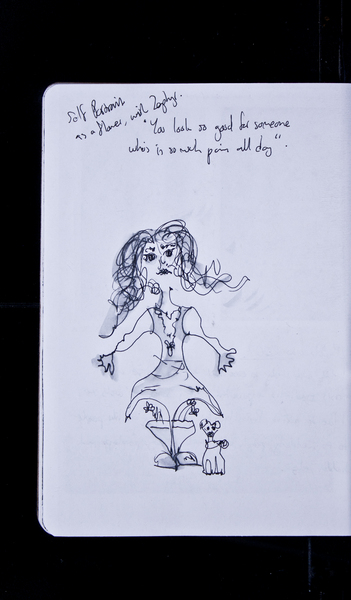 Self Portrait
as a flower, with Zephyr.
"You look so good for someone
who's in so much pain all day".